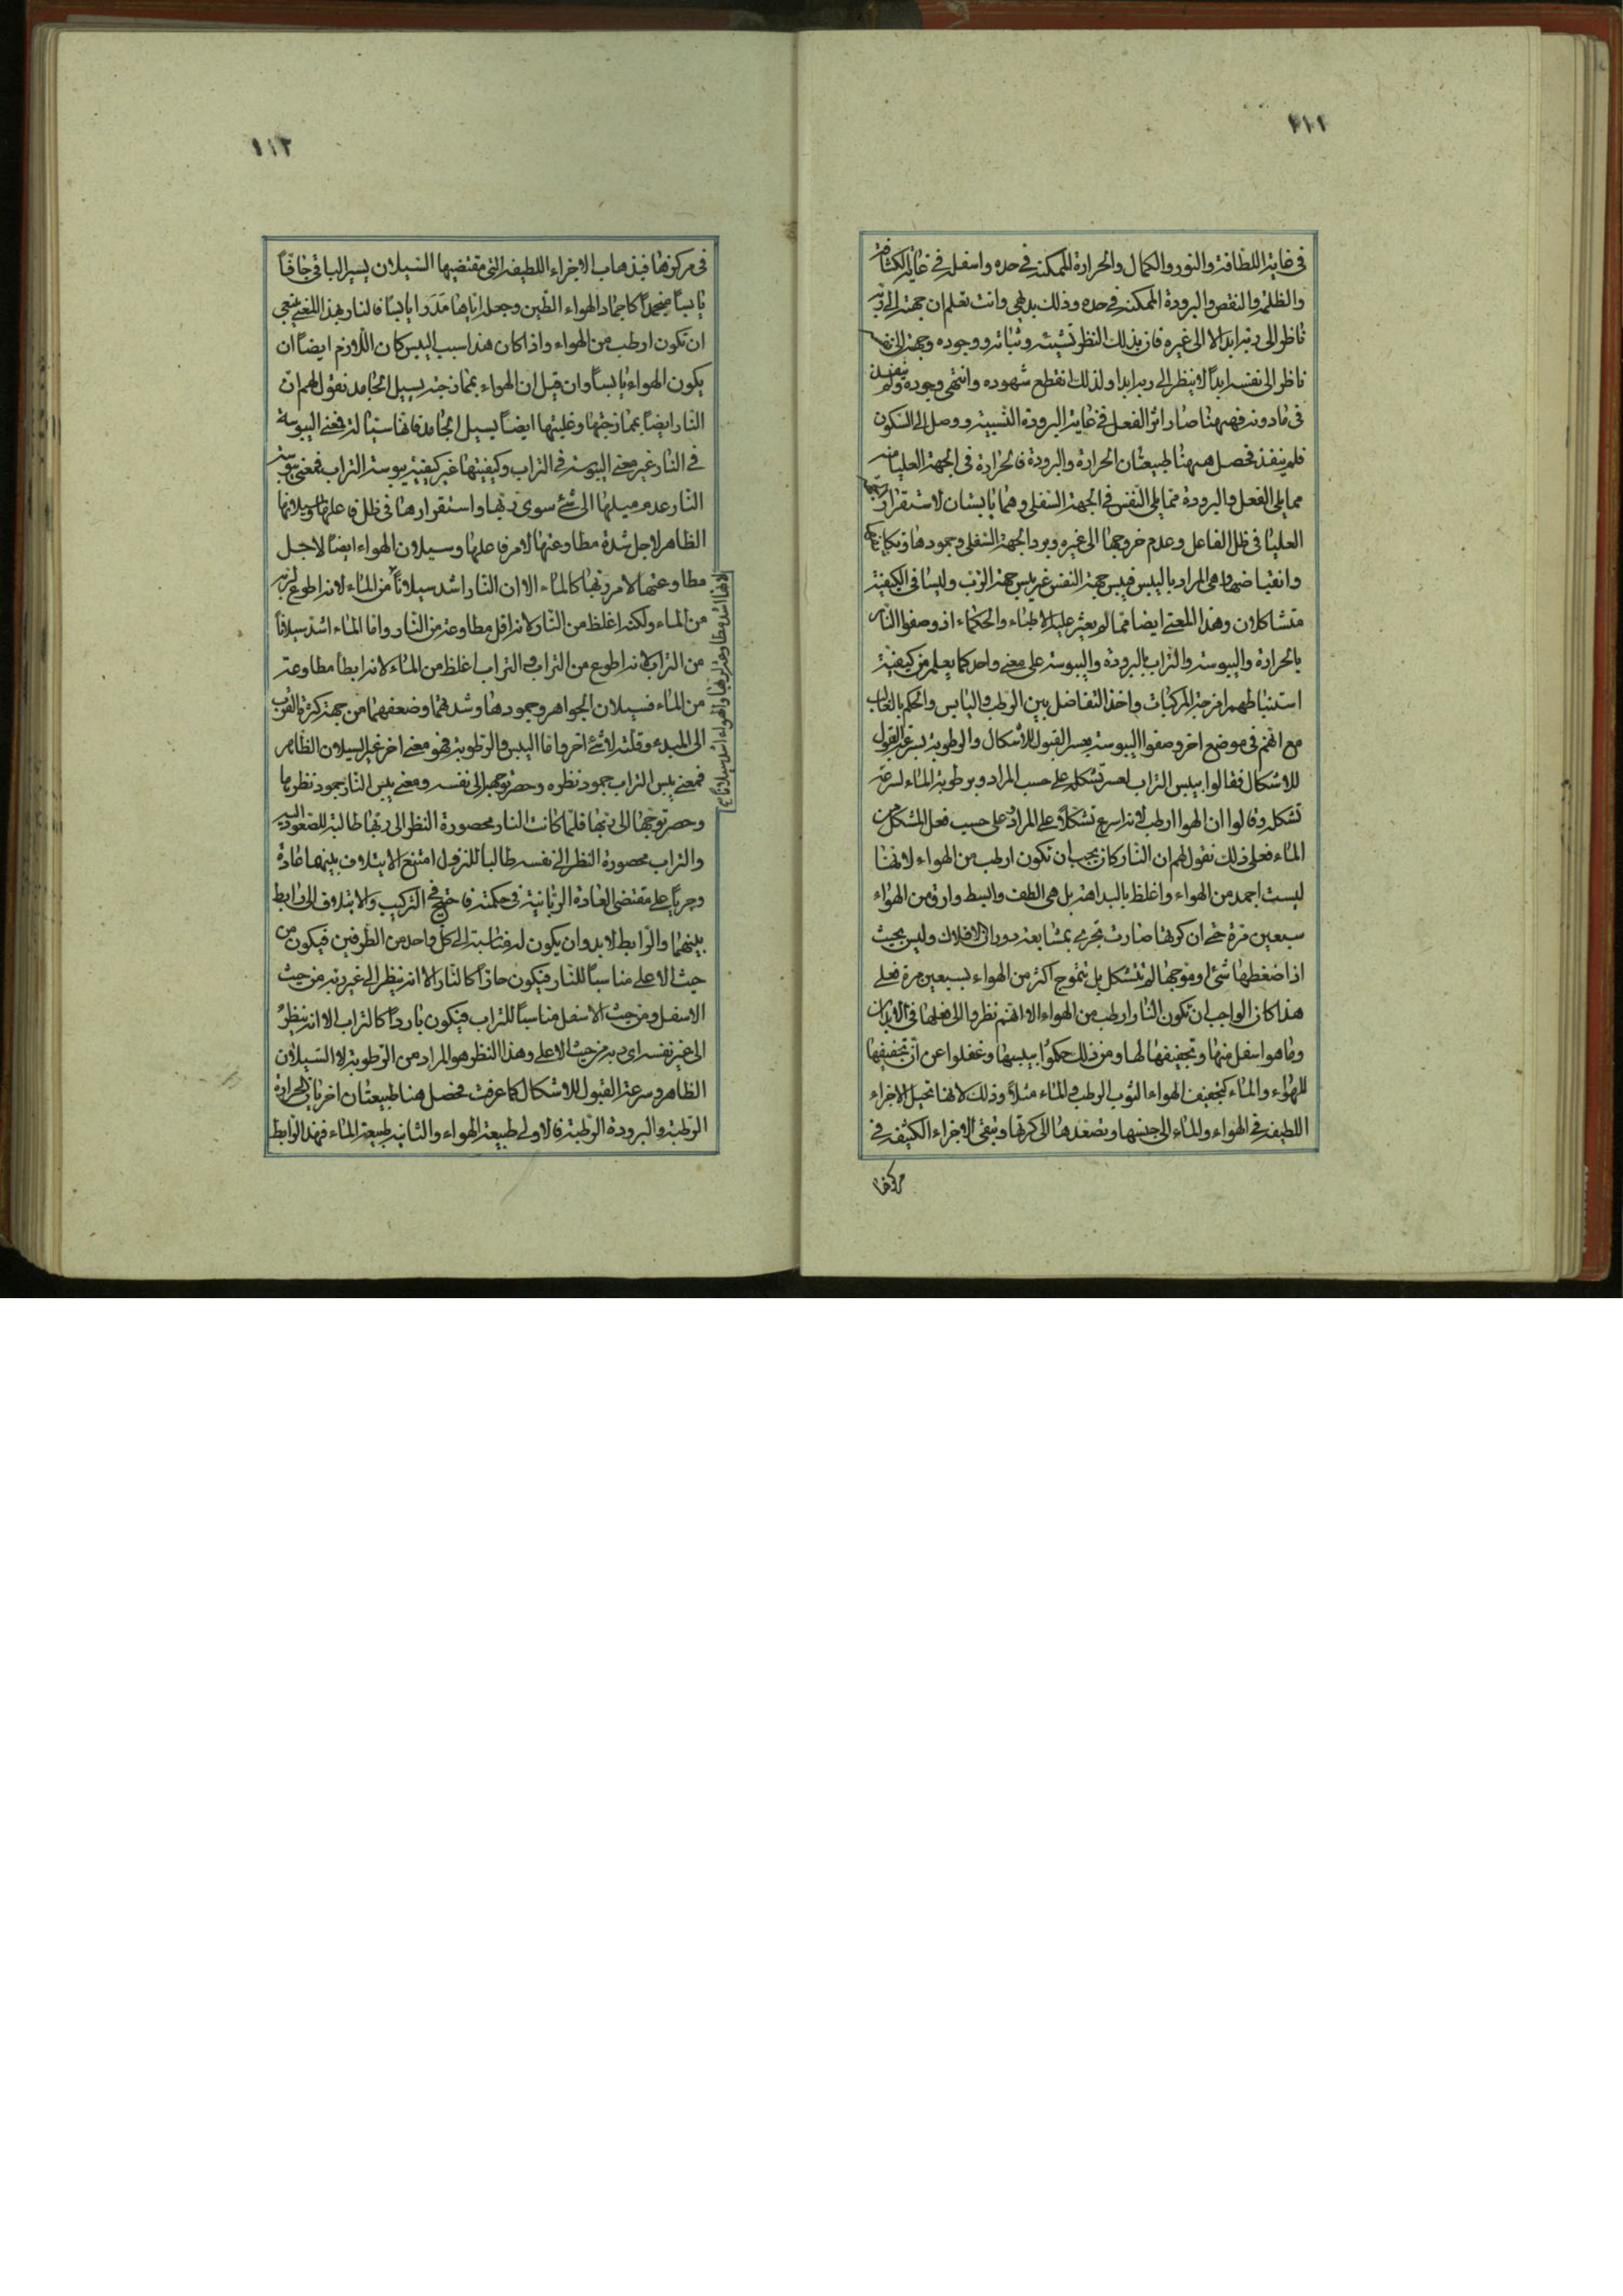 ٢١٢
في غاية اللطافة والنور والكمال والحرارة الممكنة في حده واسفله في غاية الكثافة
والظلمة والنقص والبرودة الممكنة في حده وذلك بديهي وانت تعلم ان جهته الى ربه
ناظرة الى ربه ابدا لا الى غيره فان بذلك النظر تشيئه وثباته ووجوده وجهته الى نفسه
ناظرة الى نفسه ابداً لا ينظر الى ربه ابدا ولذلك انقطع شهوده وانتهى وجوده ولم ينفذ
في مادونه فههنا صار اثر الفعل في غاية البرودة النسبية ووصل الى السكون
فلم ينفذ فحصل ههنا طبيعتان الحرارة والبرودة فالحرارة في الجهة العليا منه
مما يلي الفعل والبرودة مما يلي النفس في الجهة السفلى وهما يابستان لاستقرار
العليا في ظل الفاعل وعدم خروجها الى غيره وبرد الجهة السفلى وجمودها وتكاثفها
وانقباضها وهي المراد باليبس فيبس جهة النفس غير يبس جهة الرب وليسا في الكيفية
متشاكلان وهذا المعنى ايضا مما لم يعثر عليه الاطباء والحكماء اذ وصفوا النار
بالحرارة واليبوسة والتراب بالبرودة واليبوسة على معنى واحد كما يعلم من كيفية
استنباطهم امزجة المركبات واخذ التفاضل بين الرطب واليابس والحكم بالغالب
مع انهم في موضع اخر وصفوا اليبوسة بعسر القبول للأشكال والرطوبة بسرعة القبول
للاشكال فقالوا بيبس التراب لعسر تشكله على حسب المراد وبرطوبة الماء لسرعة
تشكله وقالوا ان الهوا ارطب لانه اسرع تشكلاً على المراد على حسب فعل المشكل من
الماء فعلى ذلك نقول لهم ان النار كان يجب ان تكون ارطب من الهواء لانها
ليست اجمد من الهواء واغلظ بالبداهة بل هي الطف وابسط وارق من الهواء
سبعين مرة حتى ان كرتها صارت تجري بمشايعة دوران الافلاك وليس بحيث
اذا ضغطها شئ او موجها لم تتشكل بل تتموج اكثر من الهواء بسبعين مرة فعلى
هذا كان الواجب ان تكون النار ارطب من الهواء الا انهم نظروا الى فعلها في الابدان
وما هو اسفل منها وتجفيفها لها ومن ذلك حكموا بيبسها وغفلوا عن ان تجفيفها
للهواء والماء كتجفيف الهواء الثوب الرطب والماء مثلاً وذلك لانها تحيل الاجزاء
اللطيفة في الهواء والماء الى جنسها وتصعدها الى كرتها وتبقى الاجزاء الكثيفة في
مركزها
٢١٣
في مركزها فبذهاب الاجزاء اللطيفة التي مقتضيها السيلان يصير الباقي جافاً
يابساً منجمداً كاجماد الهواء الطين وجعله اياها مدراً يابسا فالنار بهذا المعنى ينبغي
ان تكون ارطب من الهواء واذا كان هذا سبب اليبس كان اللازم ايضاً ان
يكون الهواء يابساً وان قيل ان الهواء بممازجته يسيل الجامد نقول لهم ان
النار ايضاً بممازجتها وغلبتها ايضاً يسيل الجامد فمعنى اليبوسة
في النار غير معنى اليبوسة في التراب وكيفيتها غير كيفية يبوسة التراب فمعنى يبوسة
النار عدم ميلها الى شئ سوى ربها واستقرارها في ظل فاعلها وسيلانها
الظاهر لاجل شدة مطاوعتها لامر فاعلها وسيلان الهواء ايضاً لاجل
مطاوعتها لامر ربها كالماء الا ان النار اشد سيلاناً من الماء لانه اطوع لربه
من الماء ولكنه اغلظ من النار لانه اقل مطاوعة من النار واما الماء اشد سيلاناً
من التراب لانه اطوع من التراب والتراب اغلظ من الماء لانه ابطأ مطاوعة
من الماء فسيلان الجواهر وجمودها وشدتهما وضعفهما من جهة كثرة القرب
الى المبدء وقلته لا شئ آخر واما اليبس والرطوبة فهو معنى اخر غير السيلان الظاهر
فمعنى يبس التراب جمود نظره وحصر توجهه الى نفسه ومعنى يبس النار جمود نظرها
وحصر توجهها الى ربها فلما كانت النار محصورة النظر الى ربها طالبة للصعود اليه
والتراب محصورة النظر الى نفسه طالباً للنزول امتنع الايتلاف بينهما عادة
وجرياً على مقتضى العادة الربانية في حكمته فاحتيج في التركيب والايتلاف الى رابط
بينهما والرابط لابد وان يكون له مناسبة الى كل واحد من الطرفين فيكون من
حيث الاعلى مناسباً للنار فيكون حاراً كالنار الا انه ينظر الى غير ربه من حيث
الاسفل ومن حيث الاسفل مناسباً للتراب فيكون بارداً كالتراب الا انه ينظر
الى غير نفسه اى ربه من حيث الاعلى وهذا النظر هو المراد من الرطوبة لا السيلان
الظاهر وسرعة القبول للاشكال كما عرفت فحصل هنا طبيعتان اخريان الحرارة
الرطبة والبرودة الرطبة فالاولى طبيعة الهواء والثانية طبيعة الماء فهذا الرابط
لانها اشد مطاوعة لربها والهواء اشد سيلانا